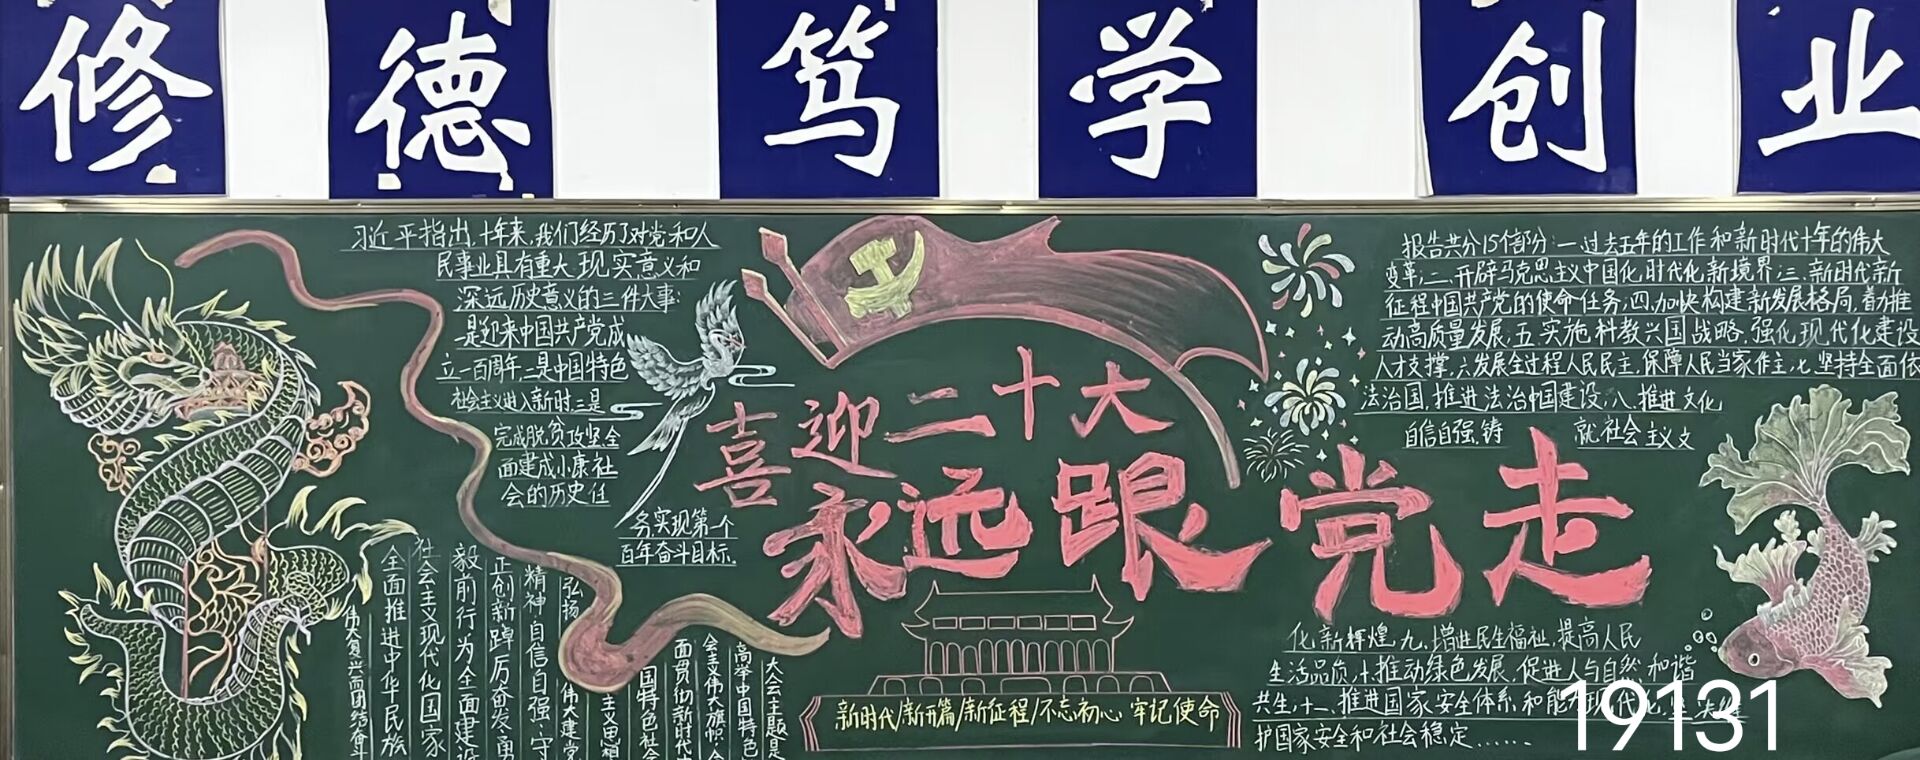 修德笃学创业
习近平指出,十年来,我们经历了对党和人
民事业具有重大现实意义和
深远历史意义的三件大事:
一是迎来中国共产党成
立一百周年,二是中国特色
社会主义进入新时,三是
完成脱贫攻坚,全
面建成小康社
会的历史任
务,实现第一个
百年奋斗目标。
喜迎二十大
永远跟党走
报告共分15个部分:一过去五年的工作和新时代十年的伟大
变革;二、开辟马克思主义中国化,时代化新境界;三、新时代新
征程中国共产党的使命任务,四,加快构建新发展格局,着力推
动高质量发展,五,实施科教兴国战略,强化现代化建设
人才支撑,六发展全过程人民民主,保障人民当家作主,七,坚持全面依
法治国,推进法治中国建设,八、推进文化
自信自强,铸 就社会主义文
化新辉煌,九,增进民生福祉,提高人民
生活品质,十,推动绿色发展,促进人与自然和谐
共生,十一、推进国家安全体系和能力现代化,坚决维
护国家安全和社会稳定……
大会主题是
高举中国特色
会主义伟大旗帜,全
面贯彻新时代中
国特色社会
主义思想
伟大建党
弘扬
精神自信自强、守
正创新踔厉奋发、勇
毅前行为全面建设
社会主义现代化国家
全面推进中华民族
伟大复兴而团结奋斗
新时代/新开篇/新征程/不忘初心 牢记使命
19131